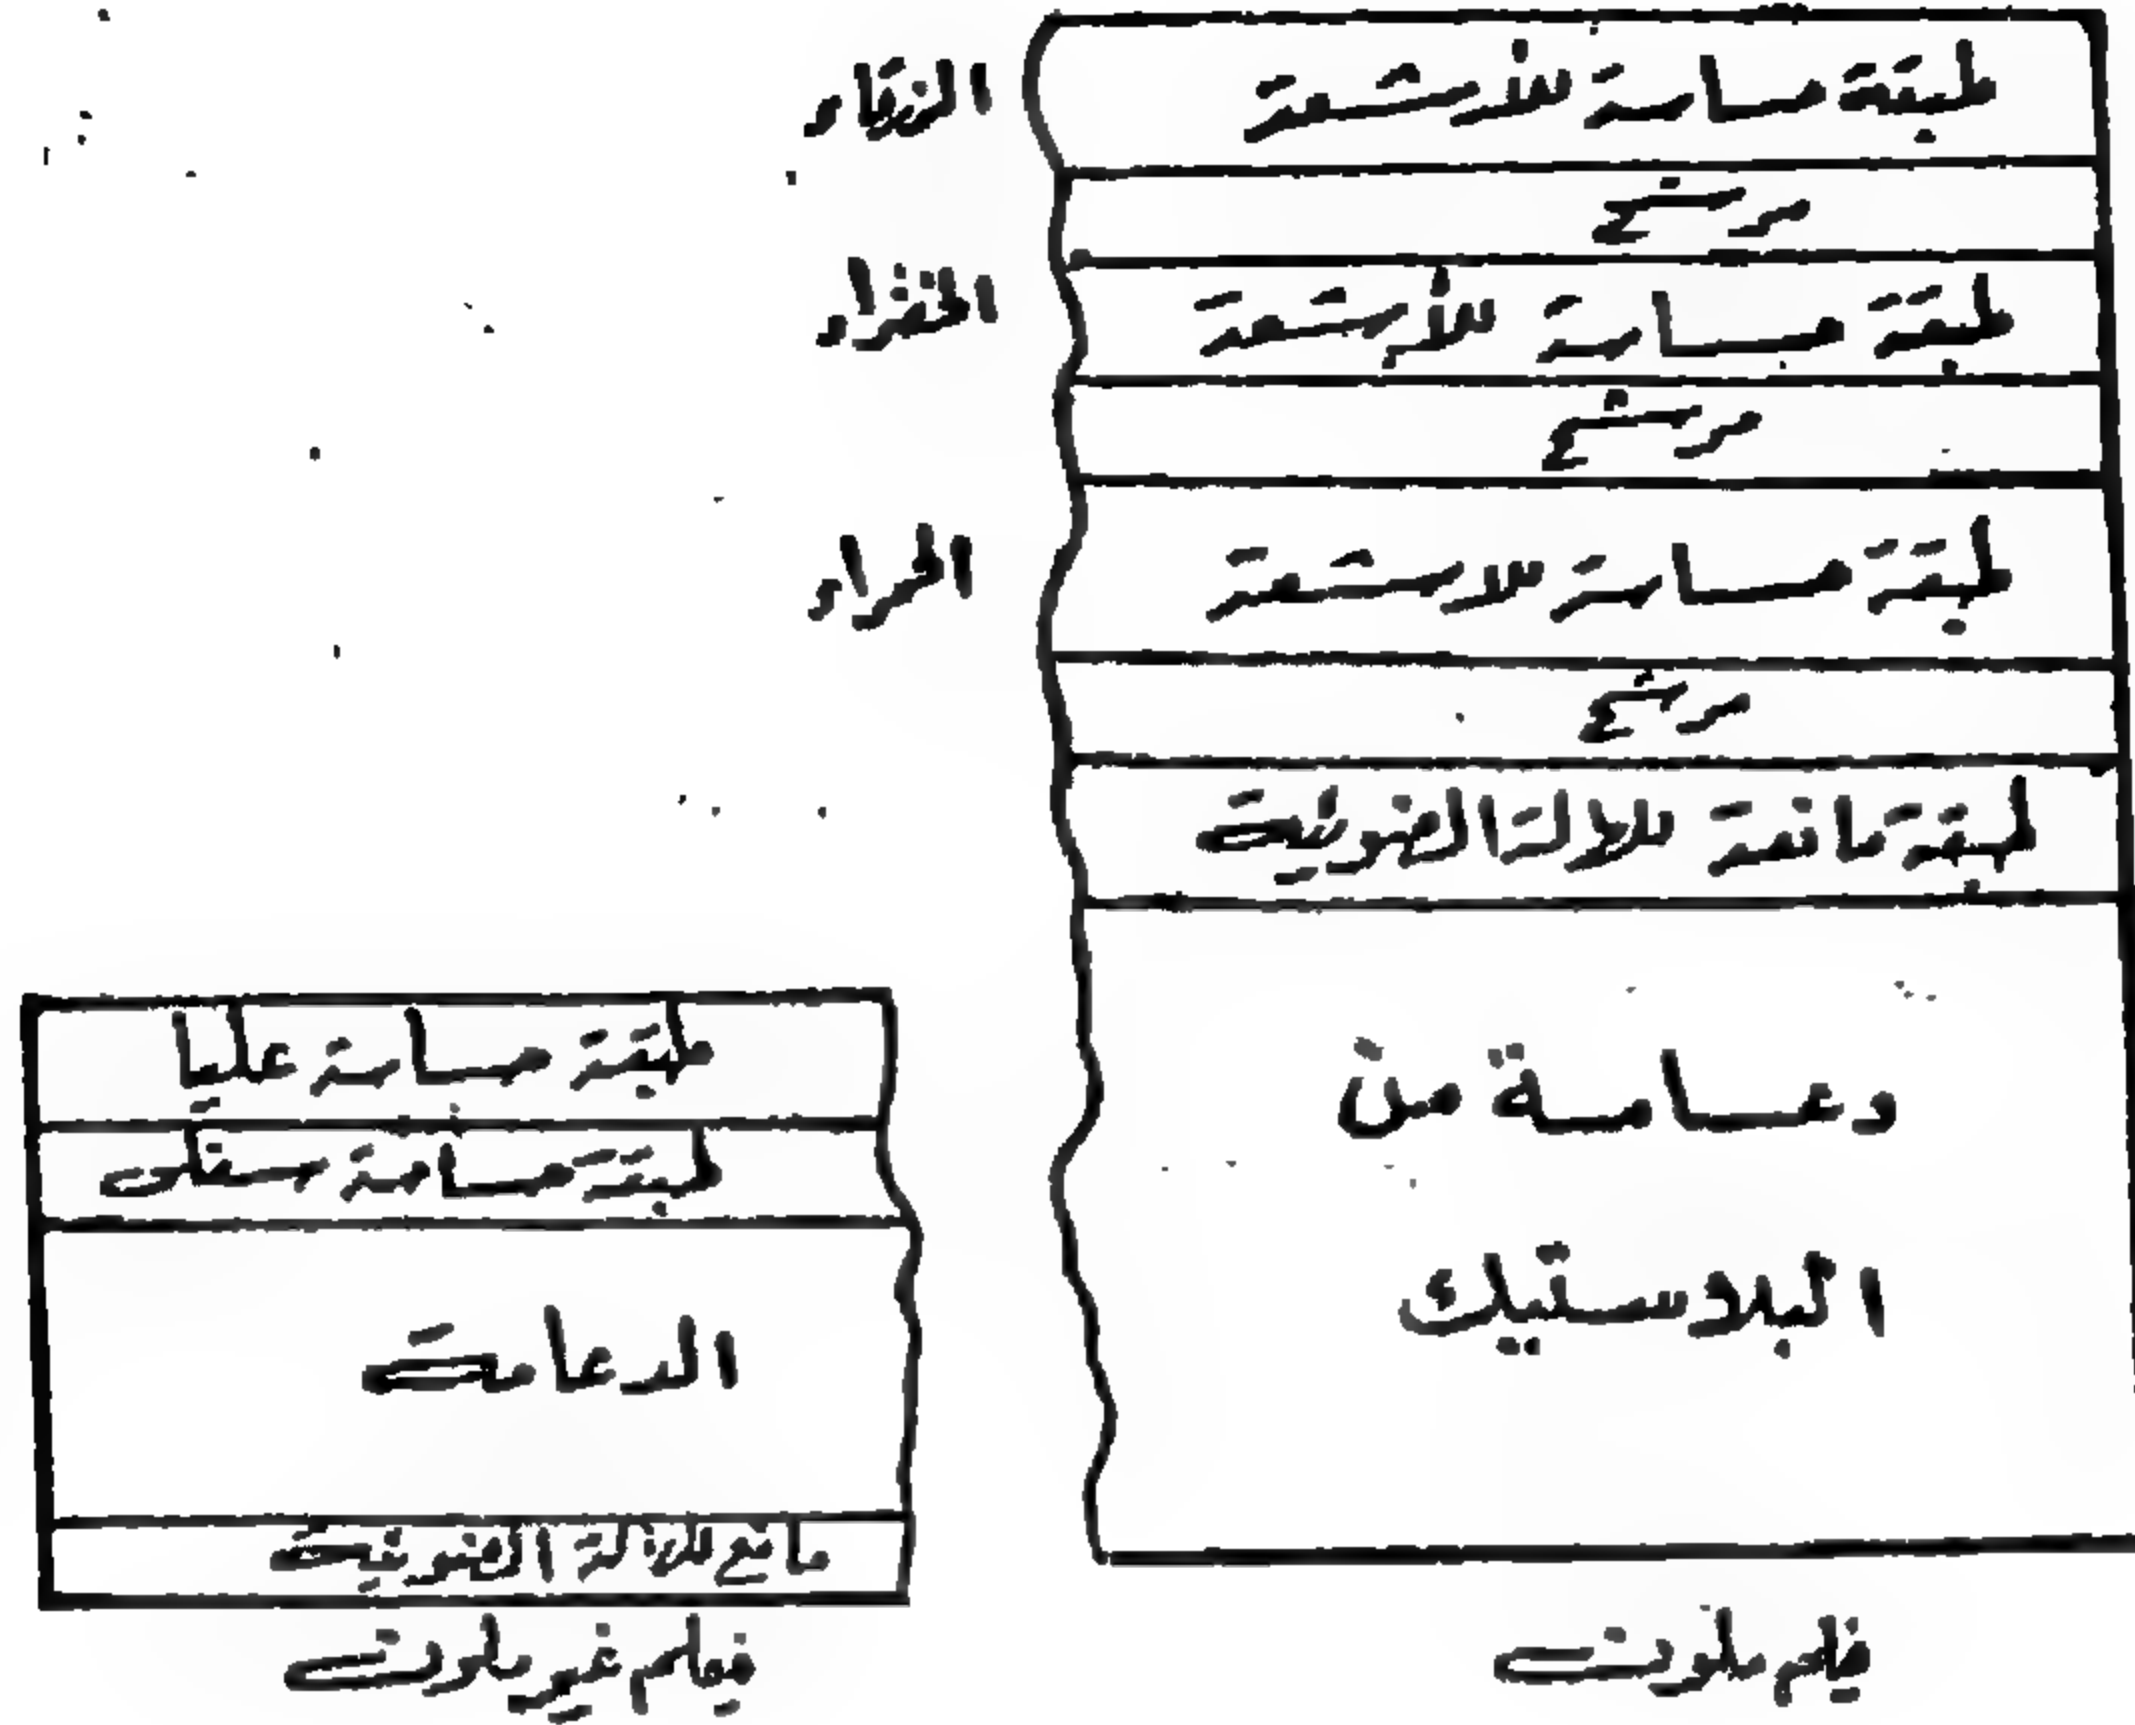 طبقة حساسة للأشعة
الزرقاء
مرشح
طبقة حساسة للأشعة
الخضراء
مرشح
طبقة حساسة للاشعة
الحمراء
مرشح
طبقة مانعة للهالة الضوئية
دعامة من
البلاستيك
فيلم ملون
طبقة حساسة عليا
طبقة حساسة سفلى
الدعامة
مانع للهالة الضوئية
فيلم غير ملون